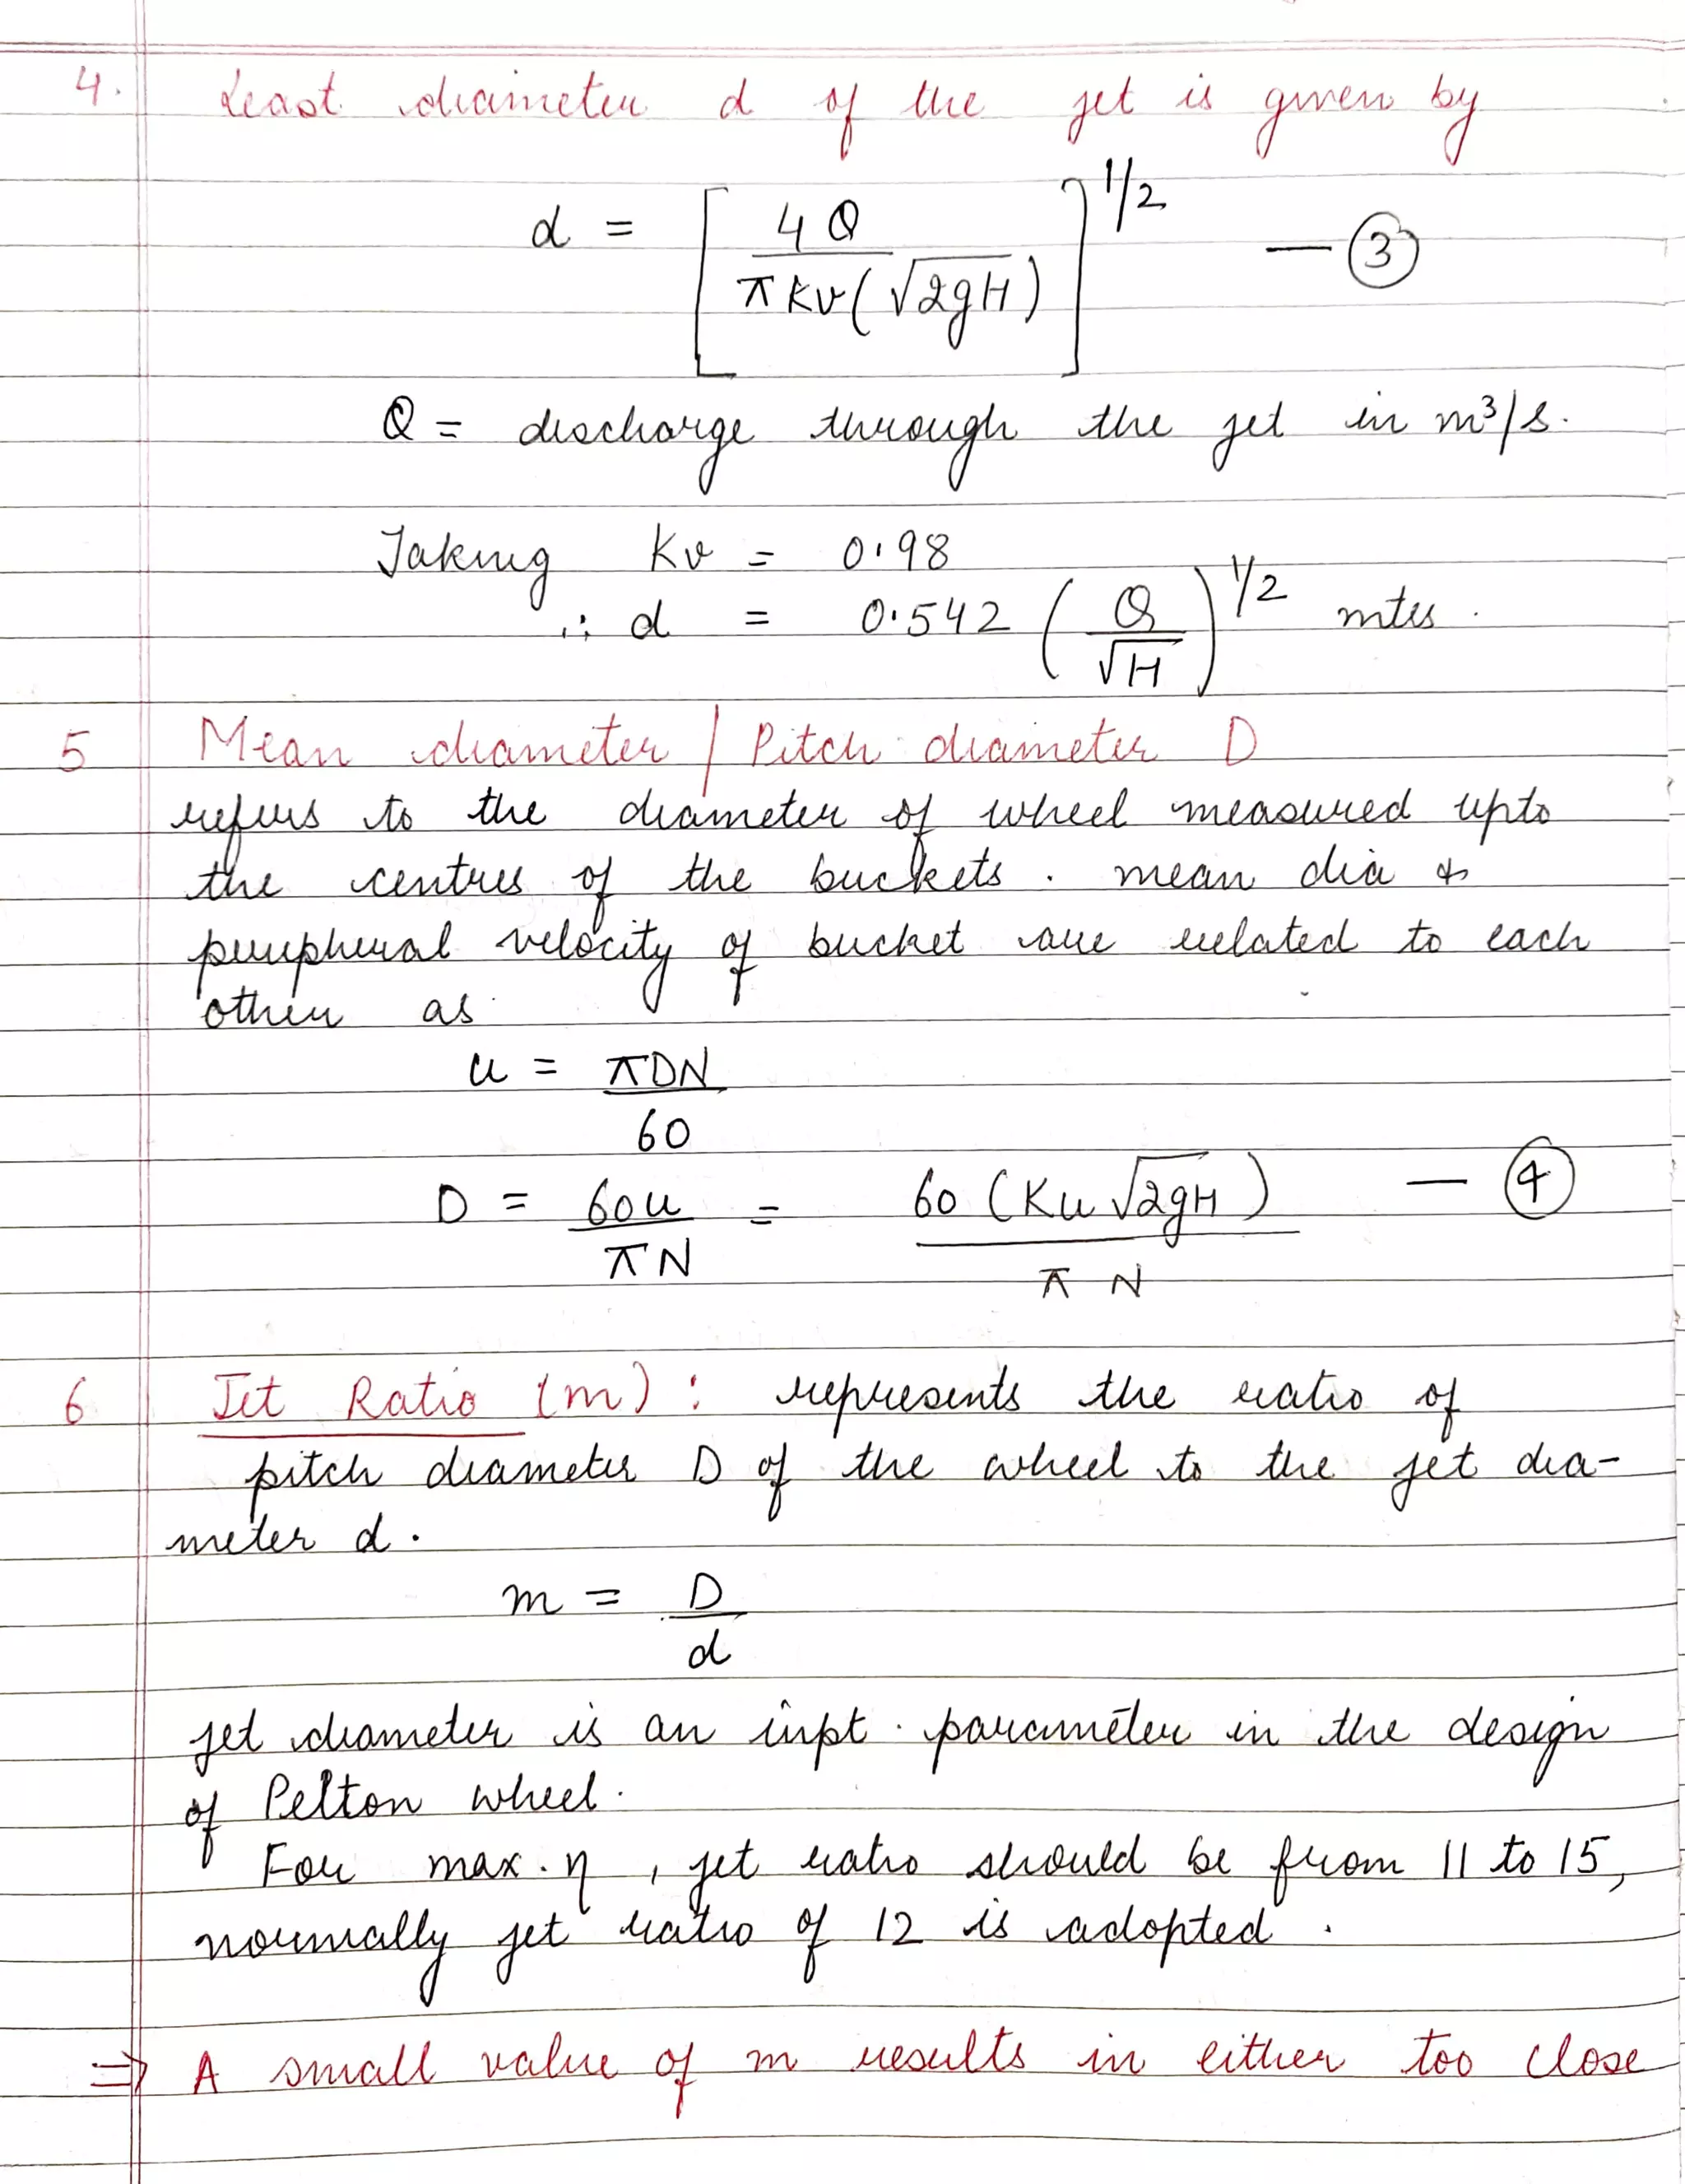 4. Least diameter d of the jet is given by
d = [ 4Q / πKv(√2gH) ]^1/2 — ③
Q = discharge through the jet in m³/s.
Taking Kv = 0.98
∴ d = 0.542 ( Q / √H )^1/2 mtrs.
5 Mean diameter / Pitch diameter D
refers to the diameter of wheel measured upto
the centres of the buckets. mean dia &
peripheral velocity of bucket are related to each
other as
u = πDN / 60
D = 60u / πN = 60 (Ku √2gH) / πN — ④
6 Jet Ratio (m) : represents the ratio of
pitch diameter D of the wheel to the jet dia-
meter d.
m = D / d
jet diameter is an impt. parameter in the design
of Pelton wheel.
For max. η, jet ratio should be from 11 to 15,
normally jet ratio of 12 is adopted.
⇒ A small value of m results in either too close